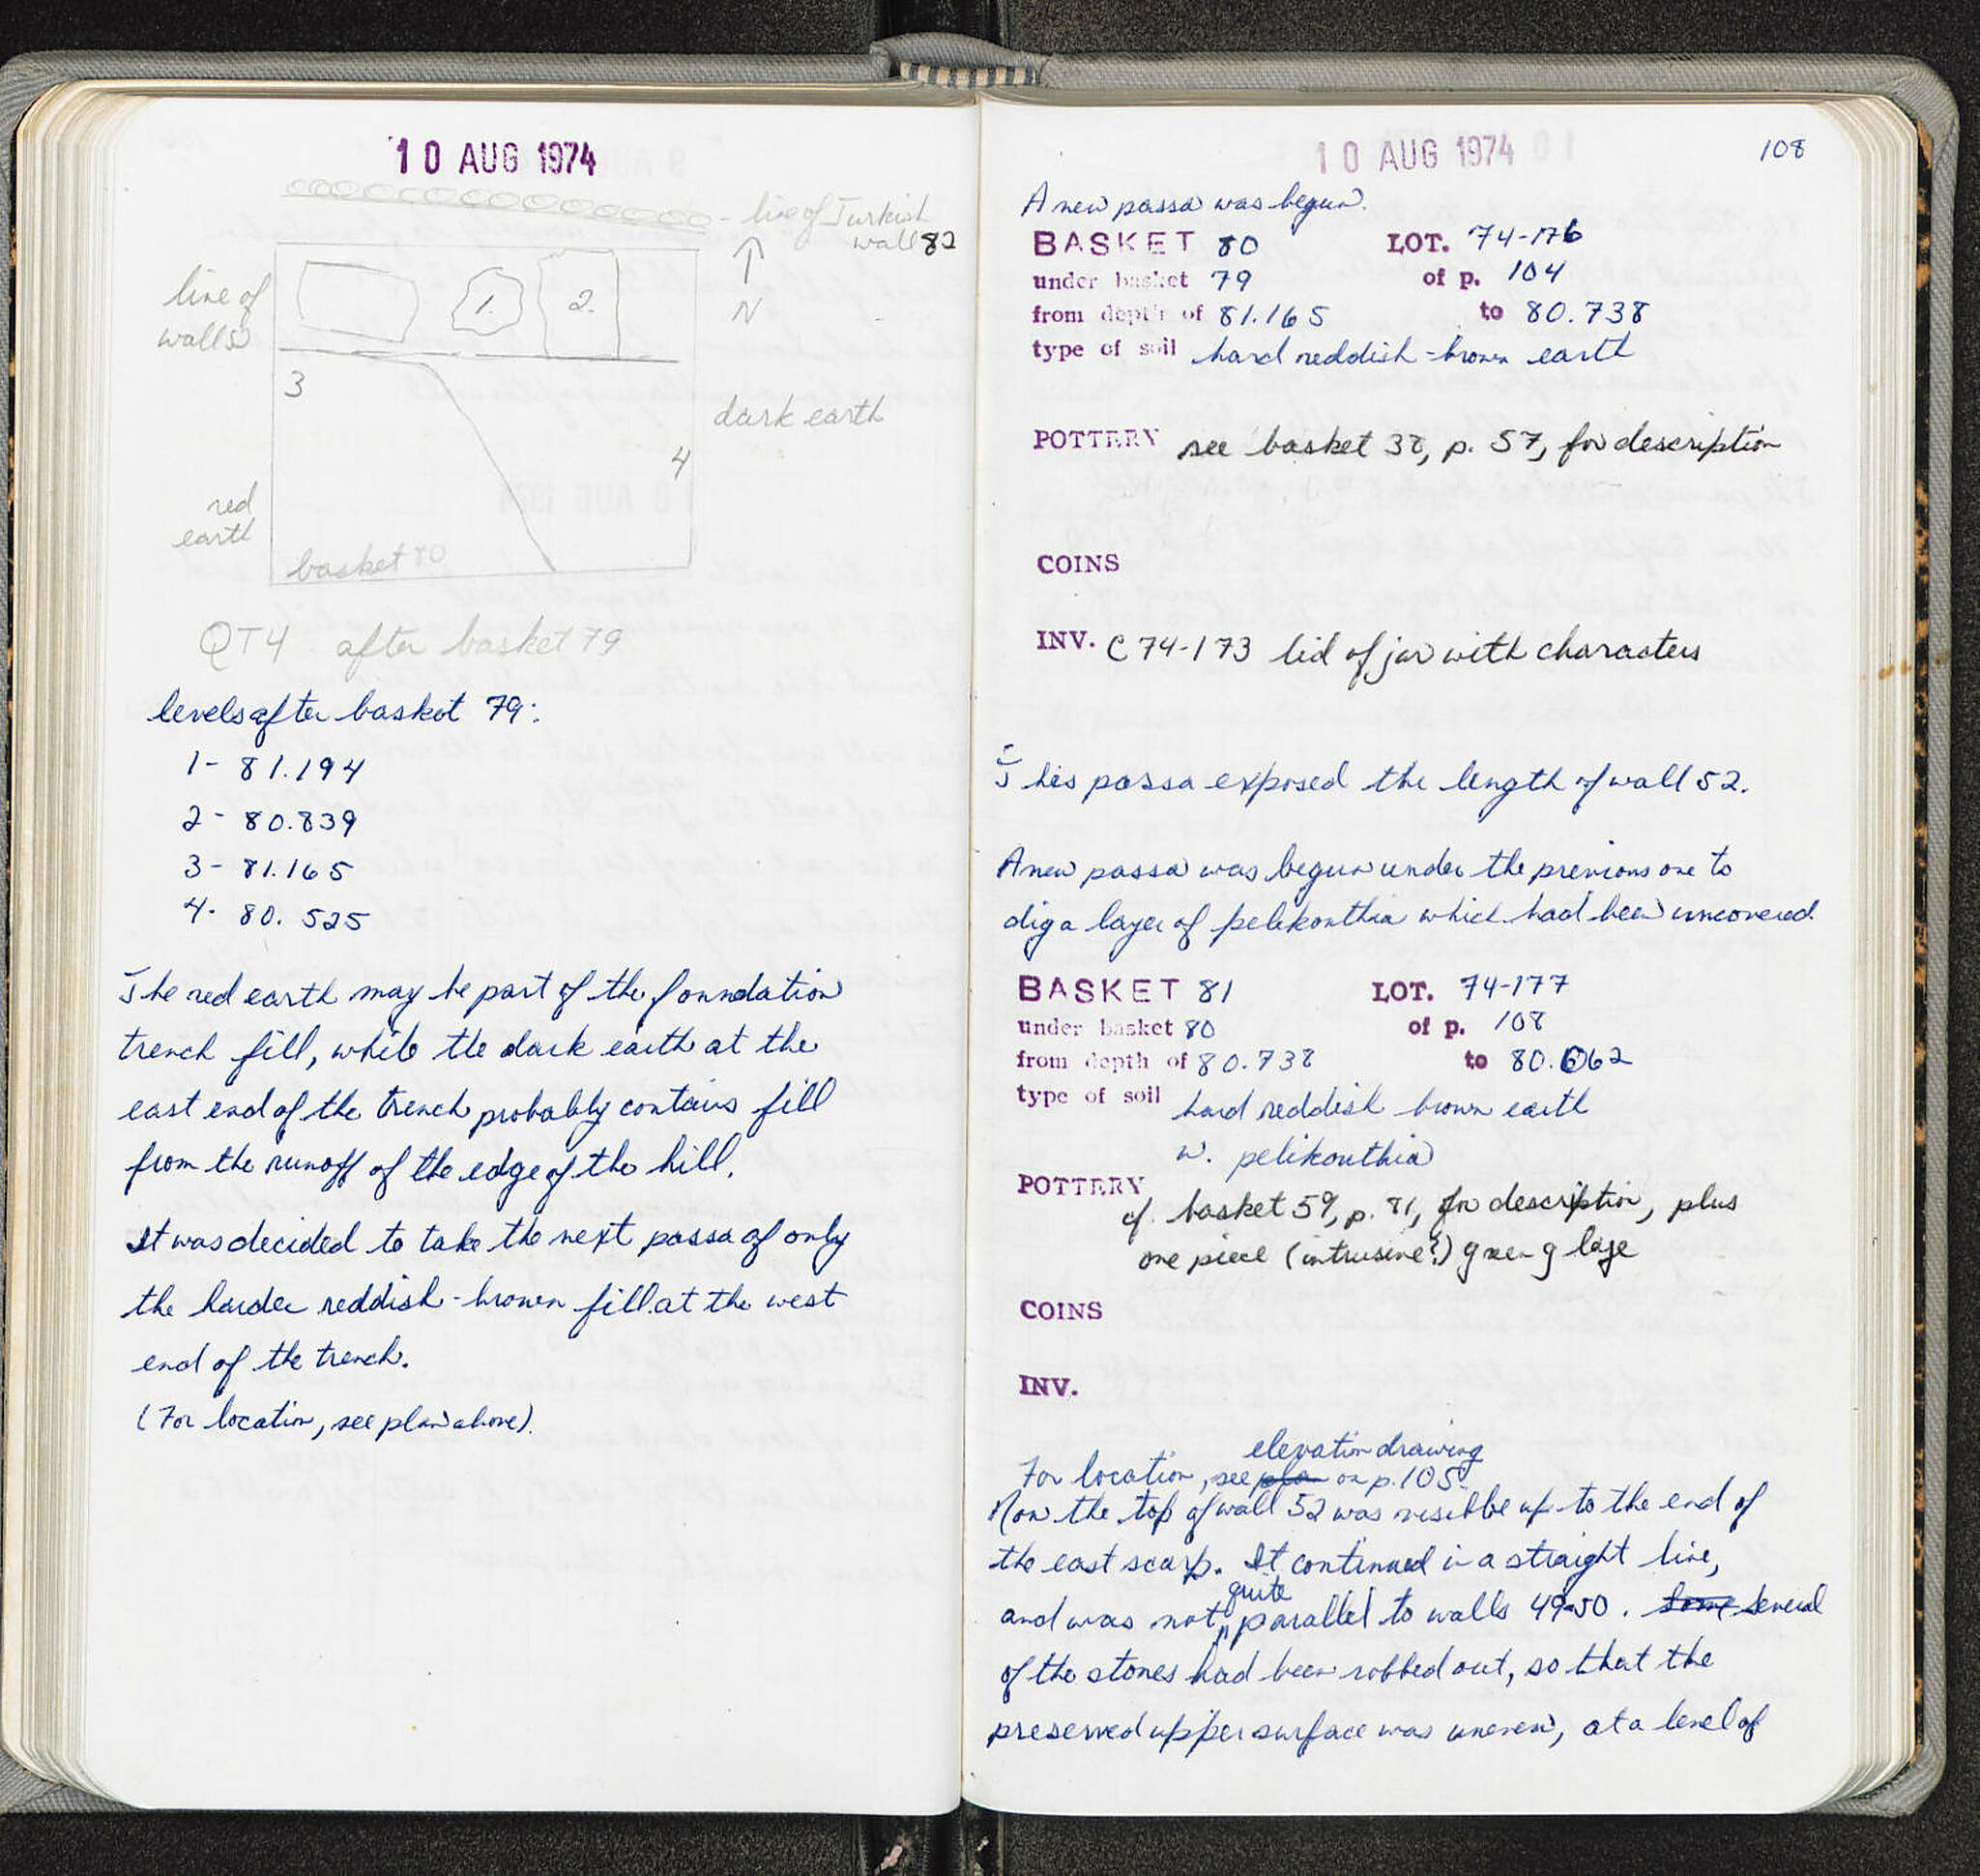 10 AUG 1974
line of Turkish
wall 82
N
line of
walls
1.
2.
3
dark earth
4
red
earth
basket 80
QT4 after basket 79
levels after basket 79:
1- 81.194
2- 80.839
3- 81.165
4- 80.525
The red earth may be part of the foundation
trench fill, while the dark earth at the
east end of the trench probably contains fill
from the runoff of the edge of the hill.
It was decided to take the next passa of only
the harder reddish-brown fill at the west
end of the trench.
(For location, see plan above).
10 AUG 1974
108
A new passa was begun.
BASKET 80 LOT. 74-176
under basket 79 of p. 104
from depth of 81.165 to 80.738
type of soil hard reddish-brown earth
POTTERY see basket 38, p. 57, for description
COINS
INV. C 74-173 lid of jar with characters
This passa exposed the length of wall 52.
A new passa was begun under the previous one to
dig a layer of pelekouthia which had been uncovered.
BASKET 81 LOT. 74-177
under basket 80 of p. 108
from depth of 80.738 to 80.662
type of soil hard reddish brown earth
w. pelikouthia
POTTERY
cf. basket 59, p. 81, for description, plus
one piece (intrusive?) green glaze
COINS
INV.
elevation drawing
For location, see plan on p. 105.
Now the top of wall 52 was visible up to the end of
the east scarp. It continued in a straight line,
quite
and was not parallel to walls 49-50. Some Several
of the stones had been robbed out, so that the
preserved upper surface was uneven, at a level of